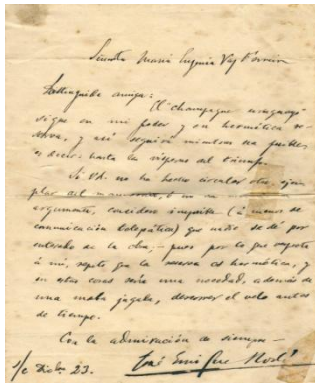 Señorita María Eugenia Vaz Ferreira
Distinguida amiga:
El champagne uruguayo
sigue en mi poder y en hermética re-
serva, y así seguirá mientras sea posible,
es decir: hasta la víspera del triunfo.
Si Vd. no ha hecho circular otro ejem-
plar del manuscrito, ó no su
argumento, considero imposible (á menos de
comunicación telepática) que nadie se dé por
enterado de la obra, – pues por lo que respecta
á mí, repito que la reserva es hermética, y
en estas cosas sería una necedad, además de
una mala jugada, descorrer el velo antes
de tiempo.
Con la admiración de siempre –
José Enrique Rodó
s/c Dicbre. 23.